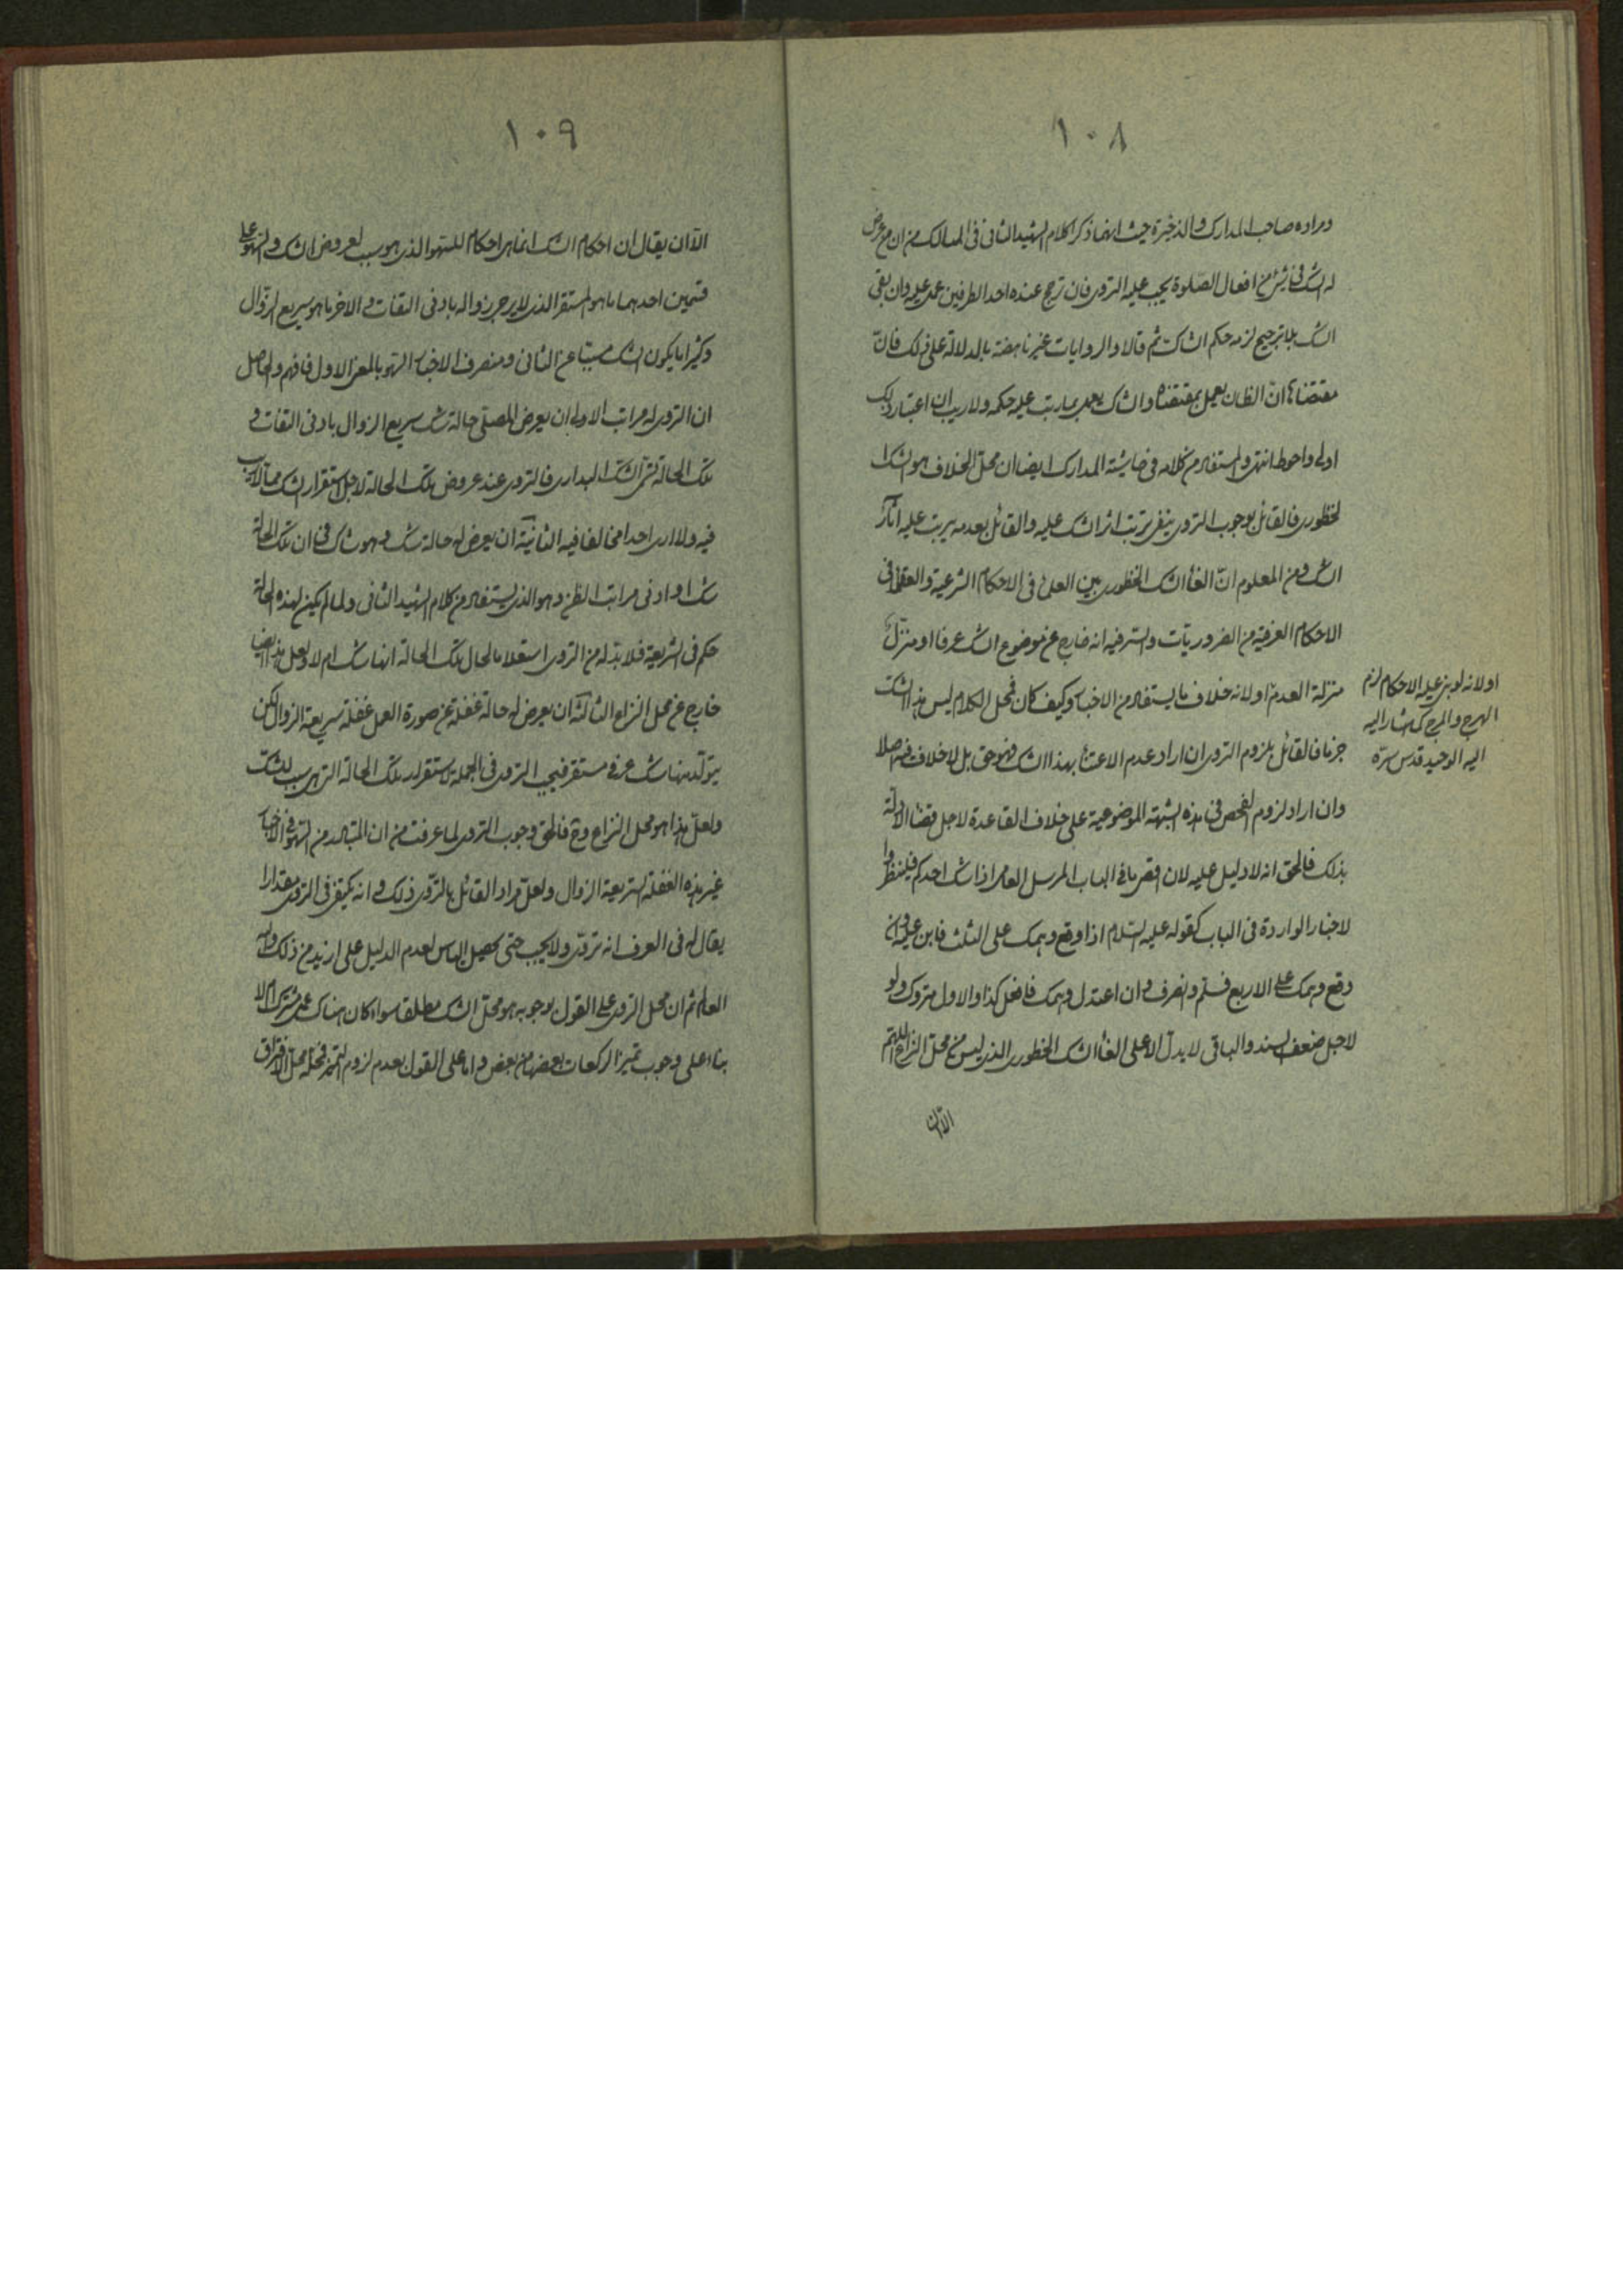 ١٠٨
ومراده صاحب المدارك والذخيرة حيث انهما ذكرا كلام الشهيد الثانى فى المسالك من ان من عرض
له الشك فى شئ من افعال الصلوة يجب عليه التروى فان ترجح عنده احد الطرفين عمل عليه وان بقى
الشك بلا ترجيح لزمه حكم الشك ثم قالا والروايات غير ناهضة بالدلالة على ذلك فان
مقتضاها ان الظان يعمل بمقتضاه والشاك يعمل بما رتب عليه حكمه ولا ريب ان اعتبار ذلك
اولى واحوط انتهى والمستفاد من كلامه فى حاشية المدارك ايضا ان محل الخلاف هو الشك
الخطورى فالقائل بوجوب التروى ينفى ترتب اثر الشك عليه والقائل بعدمه يرتب عليه آثار
الشك ومن المعلوم ان الغاء الشك الخطورى بين العلماء فى الاحكام الشرعية والعقلاء فى
الاحكام العرفية من الضروريات والسر فيه انه خارج عن موضوع الشك عرفا او منزل
منزلة العدم او لانه خلاف ما يستفاد من الاخبار وكيف كان فمحل الكلام ليس هذا الشك
جزما فالقائل بلزوم التروى ان اراد عدم الاعتناء بهذا الشك فهو حق بل لا خلاف فيه اصلا
وان اراد لزوم الفحص فى هذه الشبهة الموضوعية على خلاف القاعدة لاجل قضاء الادلة
بذلك فالحق انه لا دليل عليه لان اقصى ما فى الباب المرسل العامى اذا شك احدكم فلينظر وا
لاخبار الواردة فى الباب كقوله عليه السلام اذا وقع وهمك على الثلث فابن عليه وان
وقع وهمك على الاربع فسلم وانصرف وان اعتدل وهمك فافعل كذا والاول متروك ولو
لاجل ضعف السند والباقى لا يدل الا على الغاء الشك الخطورى الذى ليس من محل النزاع اللهم
الا ان
او لانه لو بنى عليه الاحكام لزم
الهرج والمرج كما اشار اليه
اليه الوحيد قدس سره
١٠٩
الا ان يقال ان احكام الشك انما هى احكام للسهو الذى هو سبب لعروض الشك والسهو على
قسمين احدهما ما هو المستقر الذى لا يرجى زواله بادنى التفات والاخر ما هو سريع الزوال
وكثيرا ما يكون الشك مسببا عن الثانى ومنصرف الاخبار السهو بالمعنى الاول فافهم والحاصل
ان التروى له مراتب الاولى ان يعرض للمصلى حالة شك سريع الزوال بادنى التفات و
تلك الحالة تسمى الشك البدارى فالتروى عند عروض تلك الحالة لاجل استقرار الشك مما لا ريب
فيه ولا ارى احدا مخالفا فيه الثانية ان يعرض له حالة شك وهو شاك فى ان تلك الحالة
شك او ادنى مراتب الظن وهو الذى يستفاد من كلام الشهيد الثانى ولما لم يكن لهذه الحالة
حكم فى الشريعة فلا بد له من التروى استعلاما لحال تلك الحالة انها شك ام لا ولعل هذا ايضا
خارج عن محل النزاع الثالثة ان يعرض له حالة غفلة عن صورة العمل غفلة سريعة الزوال لكن
يتولد منها شك عرفى مستقر فيجب التروى فى الجملة لاستقرار تلك الحالة التى هى سبب للشك
ولعل هذا هو محل النزاع وح فالحق وجوب التروى لما عرفت من ان المتبادر من السهو فى الاخبار
غير هذه الغفلة السريعة الزوال ولعل مراد القائل بالتروى ذلك وانه يكتفى فى التروى مقدارا
يقال له فى العرف انه تروى ولا يجب حتى يحصل الياس لعدم الدليل على ازيد من ذلك والله
العالم ثم ان محل التروى على القول بوجوبه هو محل الشك مطلقا سواء كان هناك عمل مشترك ام لا
بناء على وجوب تميز الركعات بعضها من بعض واما على القول بعدم لزوم التميز فمحله محل الافتراق